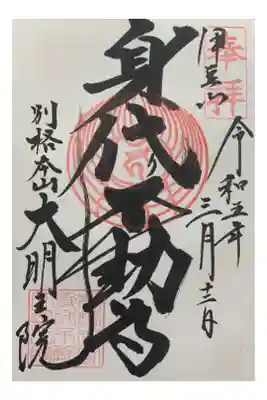 奉拝
伊豆山
令和五年
三月
身代り不動尊
別格本山
大明王院